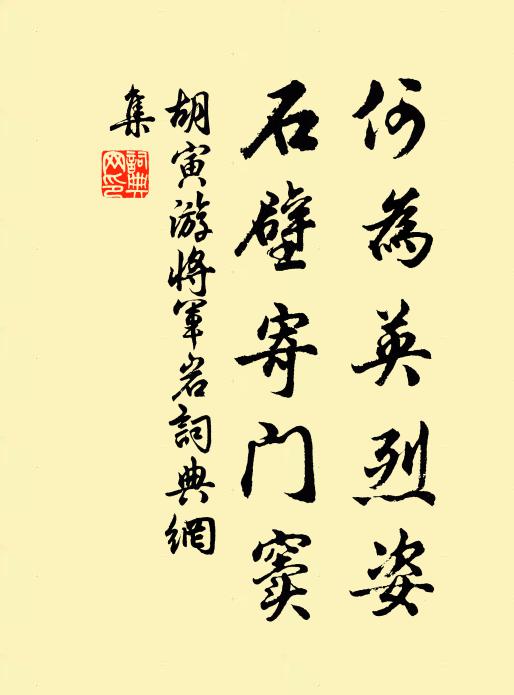 何為英烈姿
石壁寄门竇
胡寅游將軍岩詞典網
集
詞典
网印